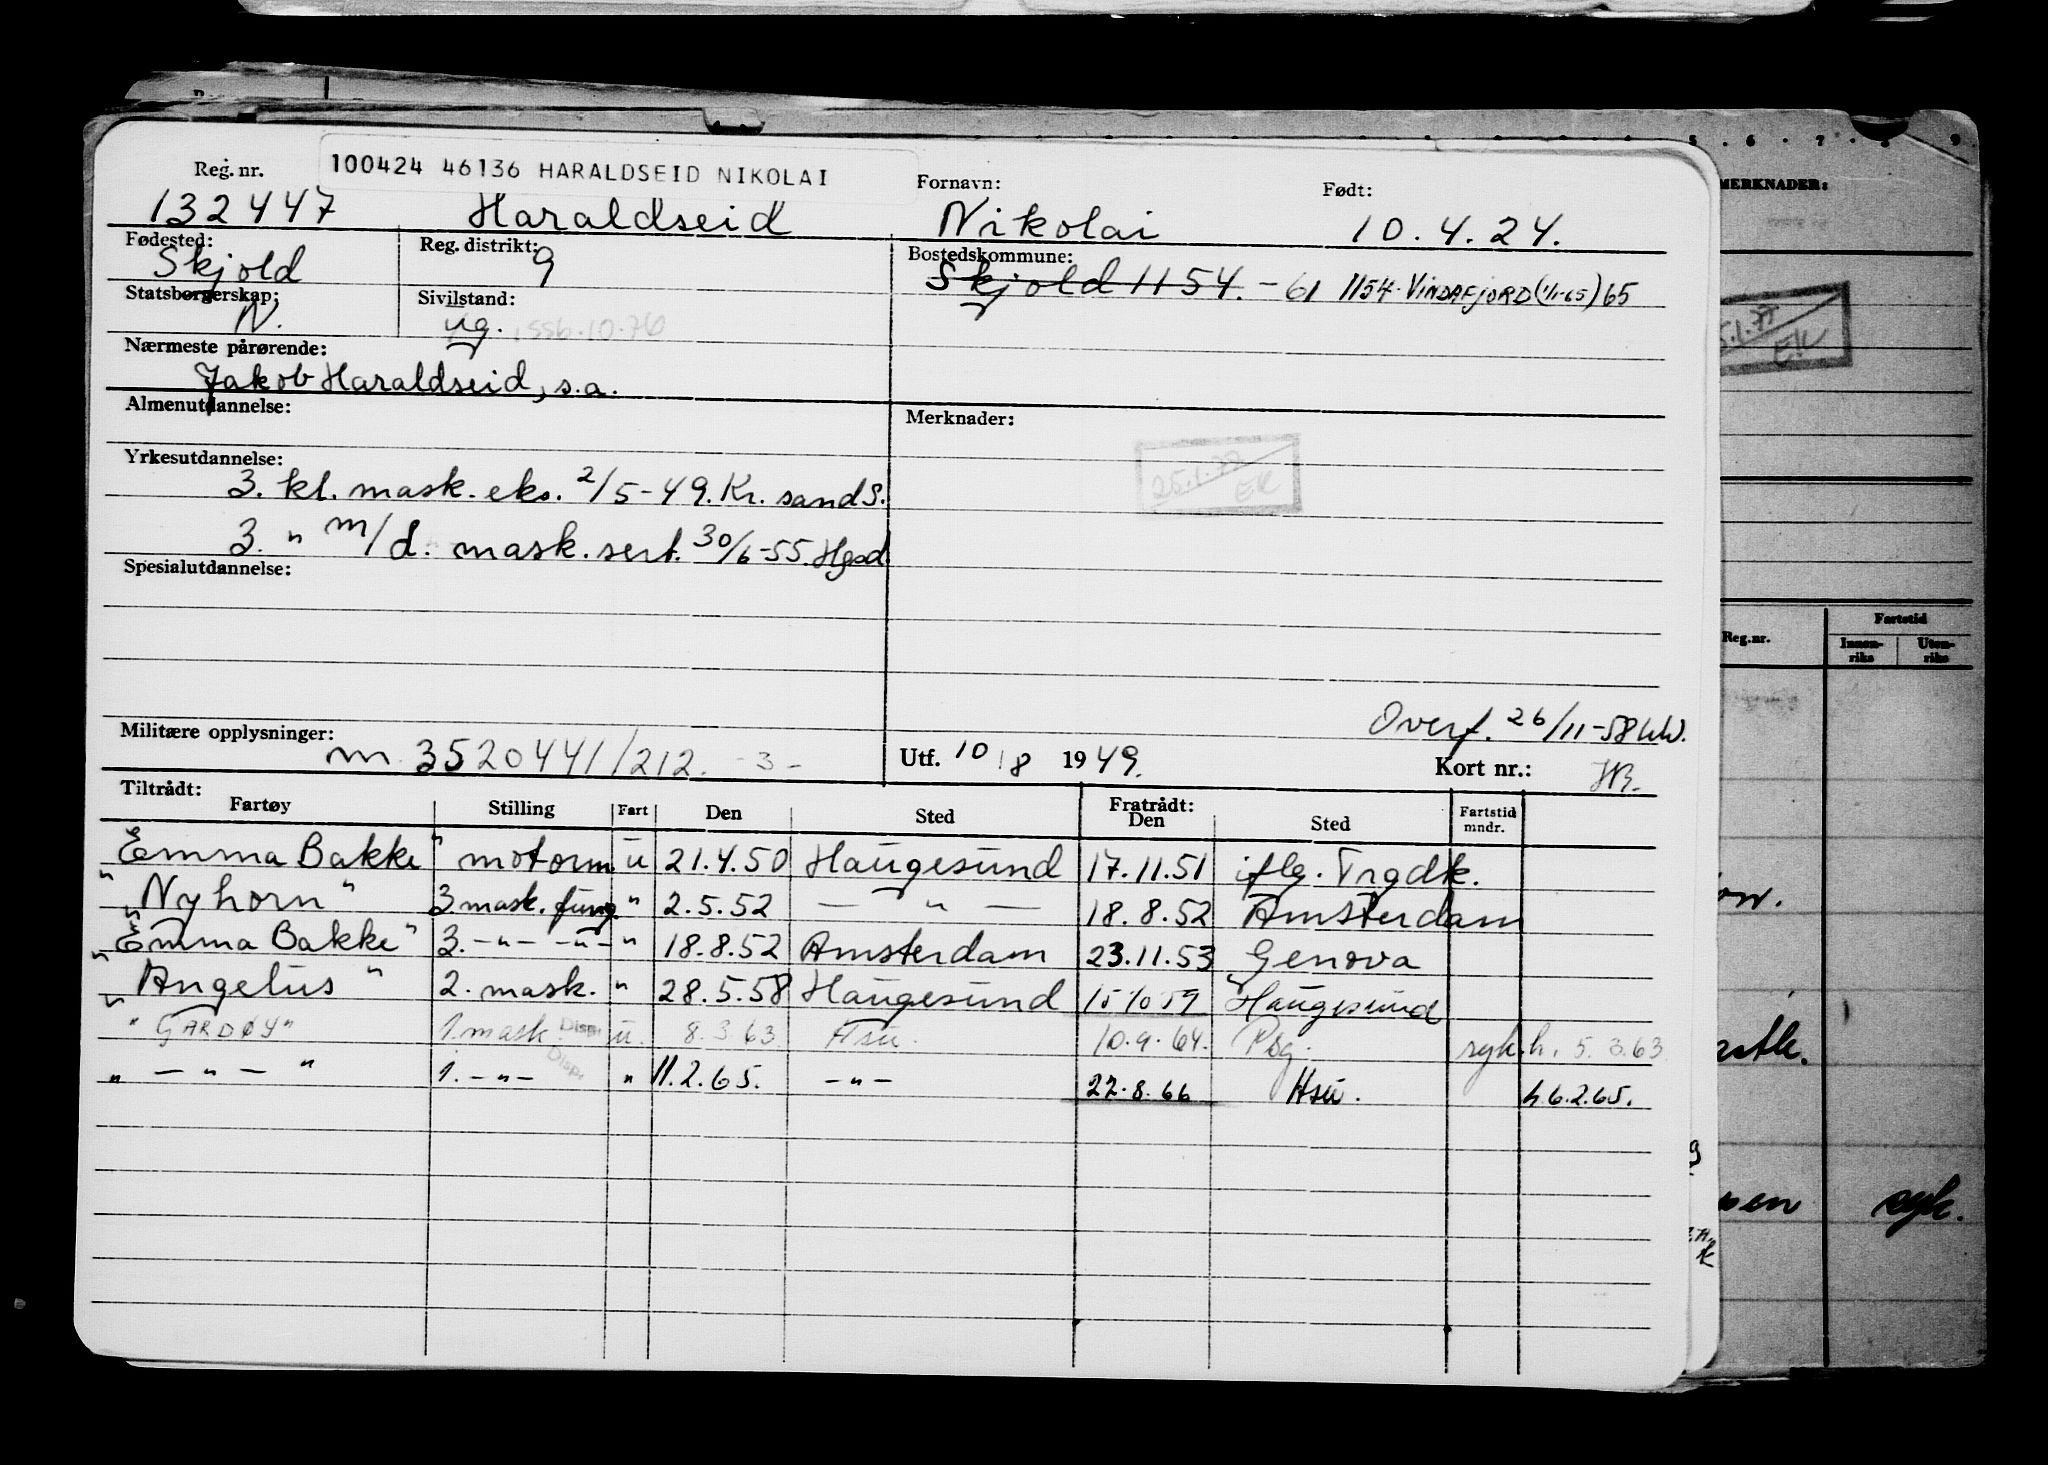 Reg. nr. 100424 46136 HARALDSEID NIKOLAI Fornavn: Født:
132447 Haraldseid Nikolai 10.4.24.
Fødested: Reg. distrikt: Bostedskommune:
Skjold 9 Skjold 1154. -61 1154 VINDAFJORD (1/1-65) 65
Statsborgerskap: Sivilstand:
N. ug. 10.76
Nærmeste pårørende:
Jakob Haraldseid, s.a.
Almenutdannelse: Merknader:
Yrkesutdannelse:
3. kl. mask. eks. 2/5-49. Kr. sand S. 25.1.77 EK
3. " m/d. mask. sert. 30/6-55. Hgsd
Spesialutdannelse:
Overf. 26/11-58
Militære opplysninger: Utf. 10/8 1949. Kort nr.:
m 3520441/212. -3-
Tiltrådt: Fratrådt:
Fartøy Stilling Fart Den Sted Den Sted Fartstid mndr.
"Emma Bakke" motorm u 21.4.50 Haugesund 17.11.51 iflg. Trgdk.
"Nyhorn" 3 mask. fung. " 2.5.52 — " — 18.8.52 Amsterdam
"Emma Bakke" 3. -"- -"- " 18.8.52 Amsterdam 23.11.53 Genova
"Angelus" 2. mask. " 28.5.58 Haugesund 15 10 59 Haugesund
"GARDØY" 1. mask. Disp. u. 8.3.63 Hsu. 10.9.64. Pbg. syk. h. 5.3.63
" — " — " 1. -"- Disp. " 11.2.65. -"- 22.8.66 Hsu. h 6.2.65.
5 . 6 . 7 . 8 . 9
MERKNADER:
5.1.77
EK
Reg.nr. Fartstid
Innen-riks Uten-riks
syk.